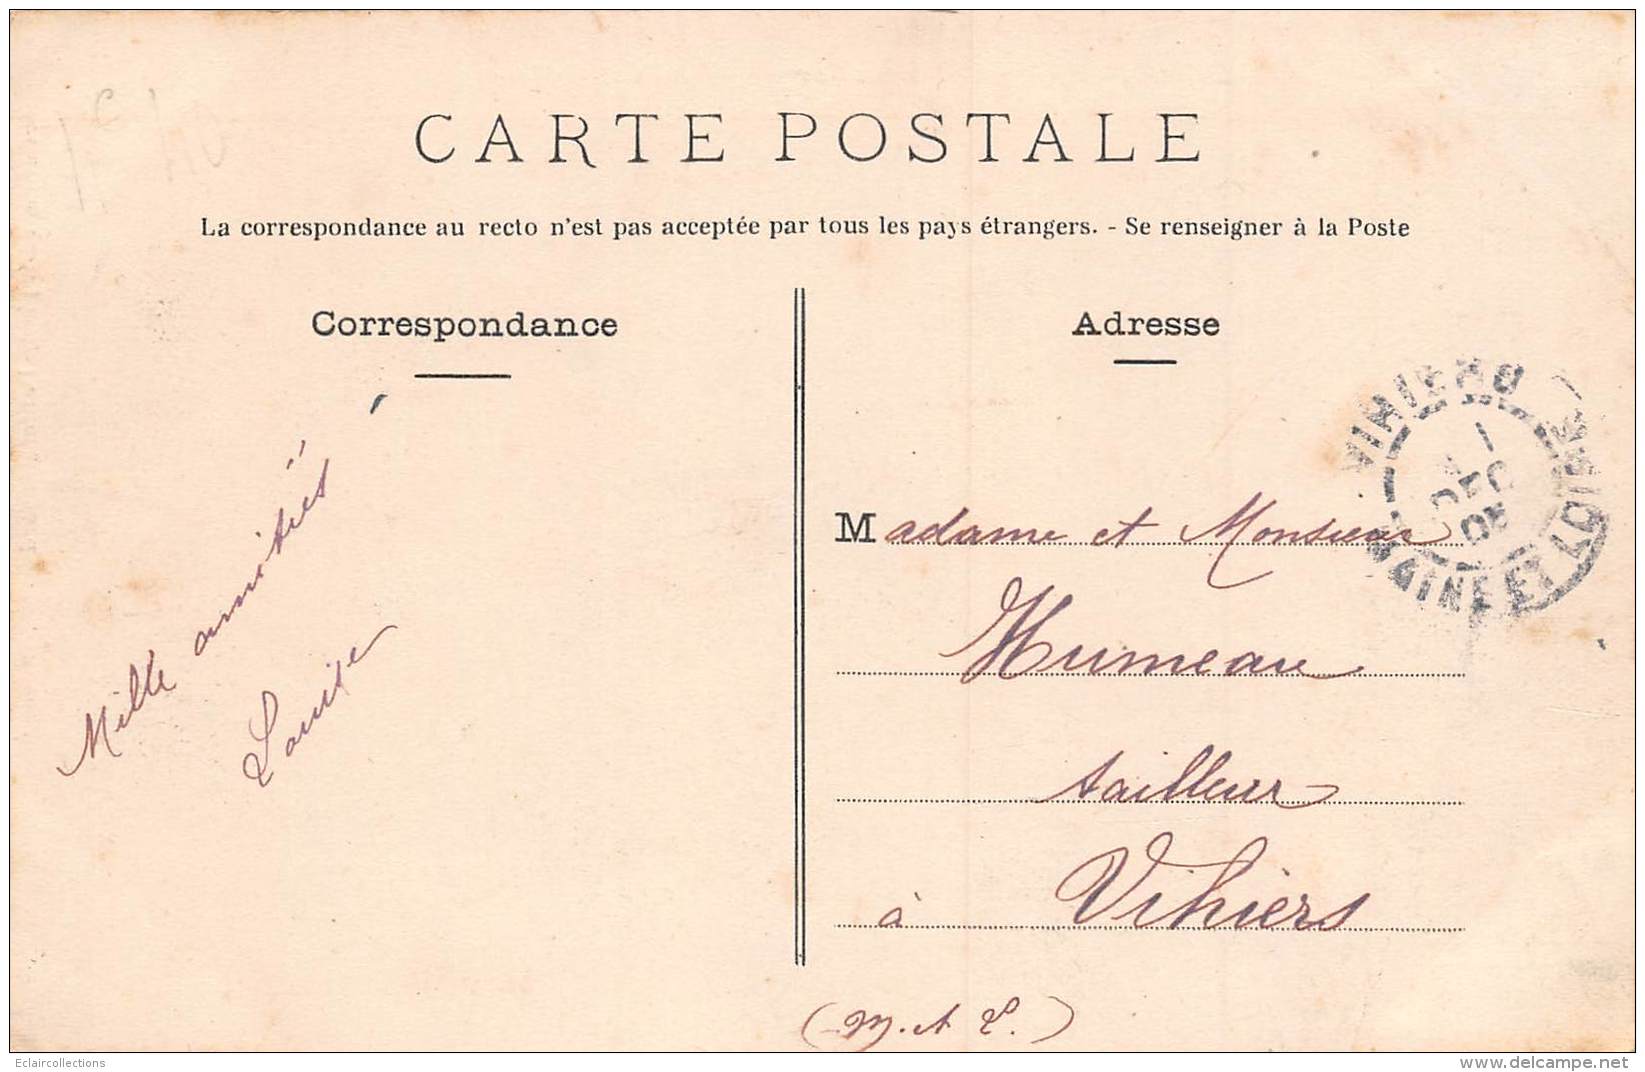 CARTE POSTALE
La correspondance au recto n'est pas acceptée par tous les pays étrangers. - Se renseigner à la Poste
Correspondance
Mille amitiés
Louise
Adresse
Madame et Monsieur
Humeau
tailleur
à Vihiers
(M. et L.)
VIHIERS
1
DEC
05
MAINE ET LOIRE
Eclaircollections
www.delcampe.net